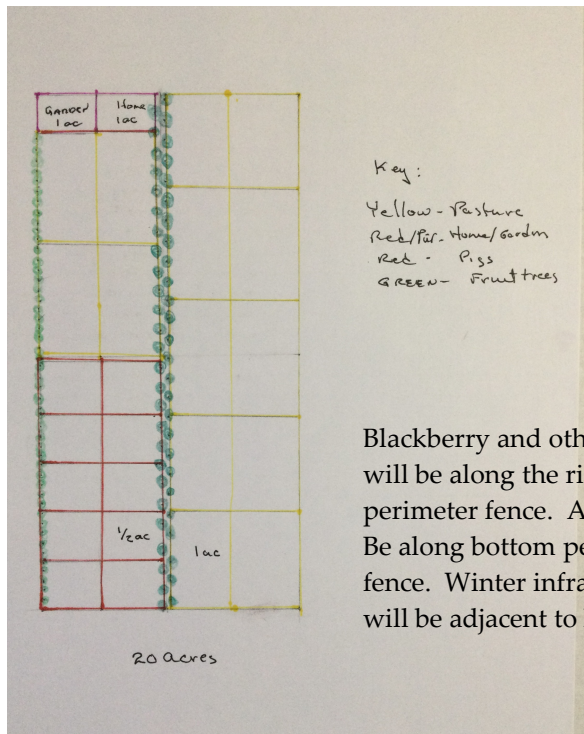 GARDEN
1 ac
Home
1 ac
Key:
Yellow - Pasture
Red/Pur - Home/Gardn
Red - Pigs
GREEN - Fruit trees
Blackberry and oth
will be along the ri
perimeter fence. A
Be along bottom pe
fence. Winter infra
will be adjacent to
1/2 ac
1 ac
20 acres